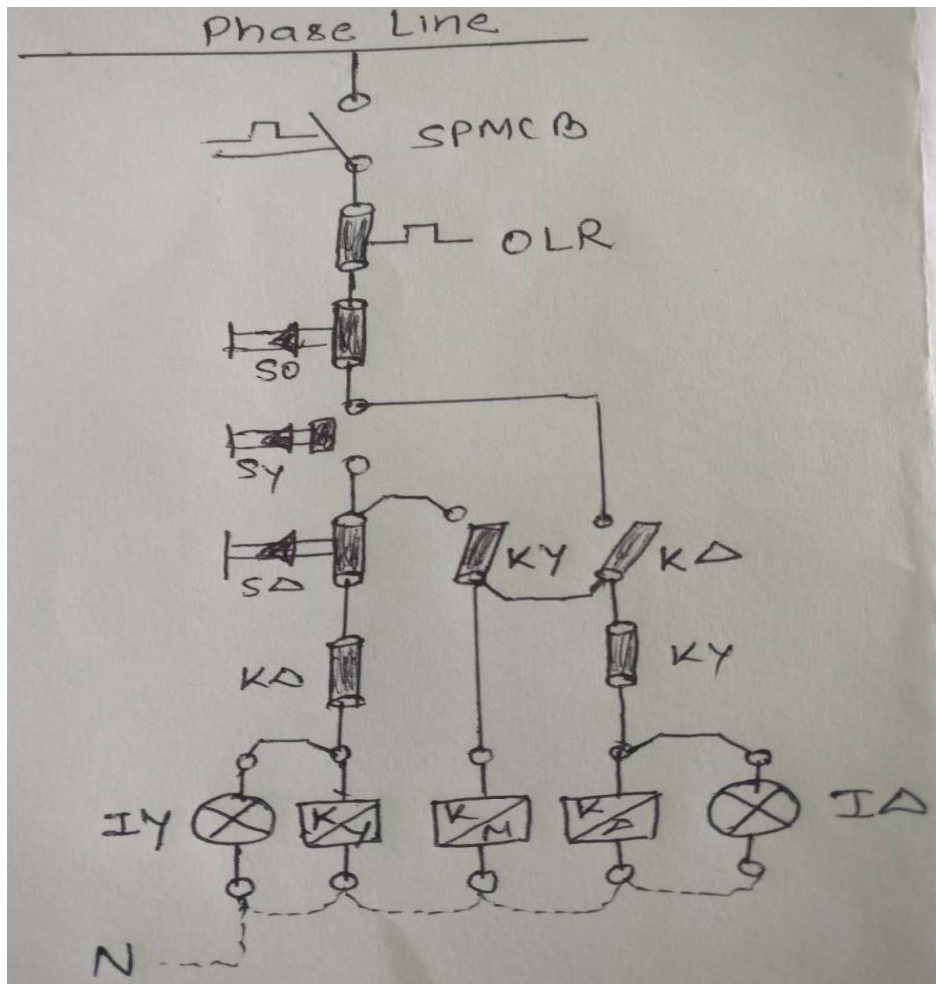 Phase Line
SPMCB
OLR
SO
SY
S∆
KY
K∆
K∆
KY
IY
K Y
K M
K ∆
I∆
N